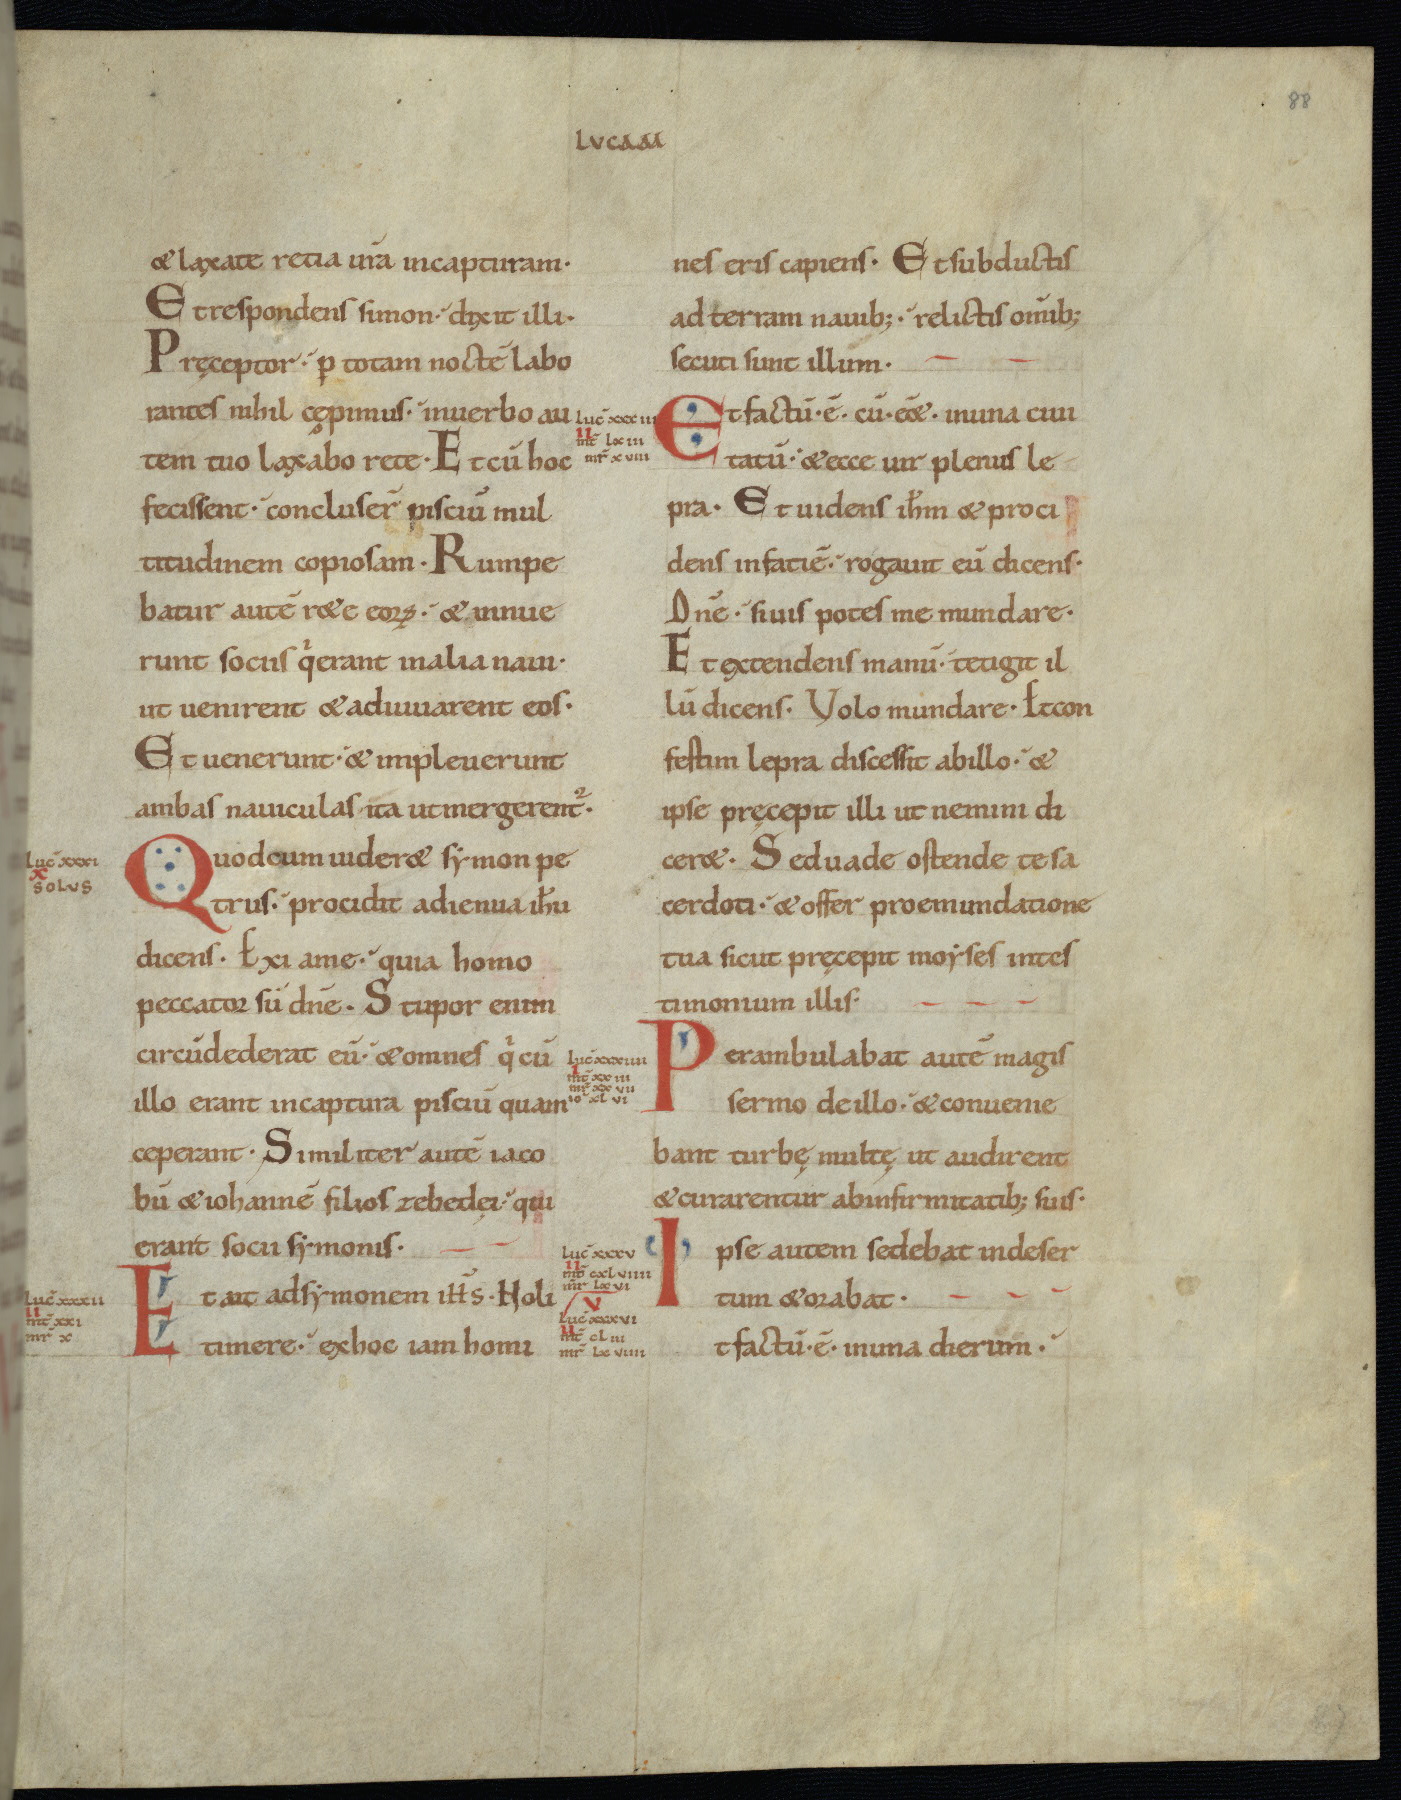 88
LVCAM
& laxate retia ur̄a incapturam·
Et respondens simon· dixit illi·
Pręceptor· ꝑ totam noctē labo
rantes nihil cępimus· inuerbo au
tem tuo laxabo rete· Et cū hoc
fecissent· concluser̄ pisciū mul
titudinem copiosam· Rumpe
batur autē r&e eoꝝ· & innue
runt sociis qⁱ erant inalia naui·
ut uenirent & adiuuarent eos·
Et uenerunt· & impleuerunt
ambas nauiculas ita ut mergerent̄·
Luc̄ xxxi
x
solus
Quod cum uider& sẏmon pe
trus· procidit adienua ihu̅
dicens· Exi ame· quia homo
peccator sū dn̄e· Stupor enim
circūdederat eū· & omnes qⁱ cū
illo erant incaptura pisciū quam
ceperant· Similiter autē iaco
bū & iohannē filios zebedęi· qui
erant socii sẏmonis·
Luc̄ xxxii
II
mt̄ xxi
mr̄ x
Et ait ad sẏmonem ih̅s· Noli
timere· ex hoc iam homi
nes eris capiens· Et subductis
ad terram nauib;· relictis om̄ib;
secuti sunt illum·
Luc̄ xxxiii
II
mt̄ lxiii
mr̄ xviii
Et factū· ē· cū· e&· inuna ciui
tatū· & ecce uir plenus le
pra· Et uidens ih̅m & proci
dens infatiē· rogauit eū dicens·
Dn̄e· si uis potes me mundare·
Et extendens manū· tetigit il
lū dicens· Volo mundare· Et con
festim lepra discessit abillo· &
ipse pręcepit illi ut nemini di
cer&· Sed uade ostende te sa
cerdoti· & offer pro emundatione
tua sicut pręcepit moẏses intes
timonium illis·
Luc̄ xxxiiii
I
mt̄ xxiii
mr̄ xxvii
io xlvi
Perambulabat autē magis
sermo de illo· & conuenie
bant turbę multę ut audirent
& curarentur abinfirmitatib; suis·
Luc̄ xxxv
II
mt̄ cxlviiii
mr̄ lxvi
Ipse autem sedebat indeser
tum & orabat·
V
Luc̄ xxxvi
II
mt̄ cliii
mr̄ lxviiii
t factū· ē· inuna dierum·